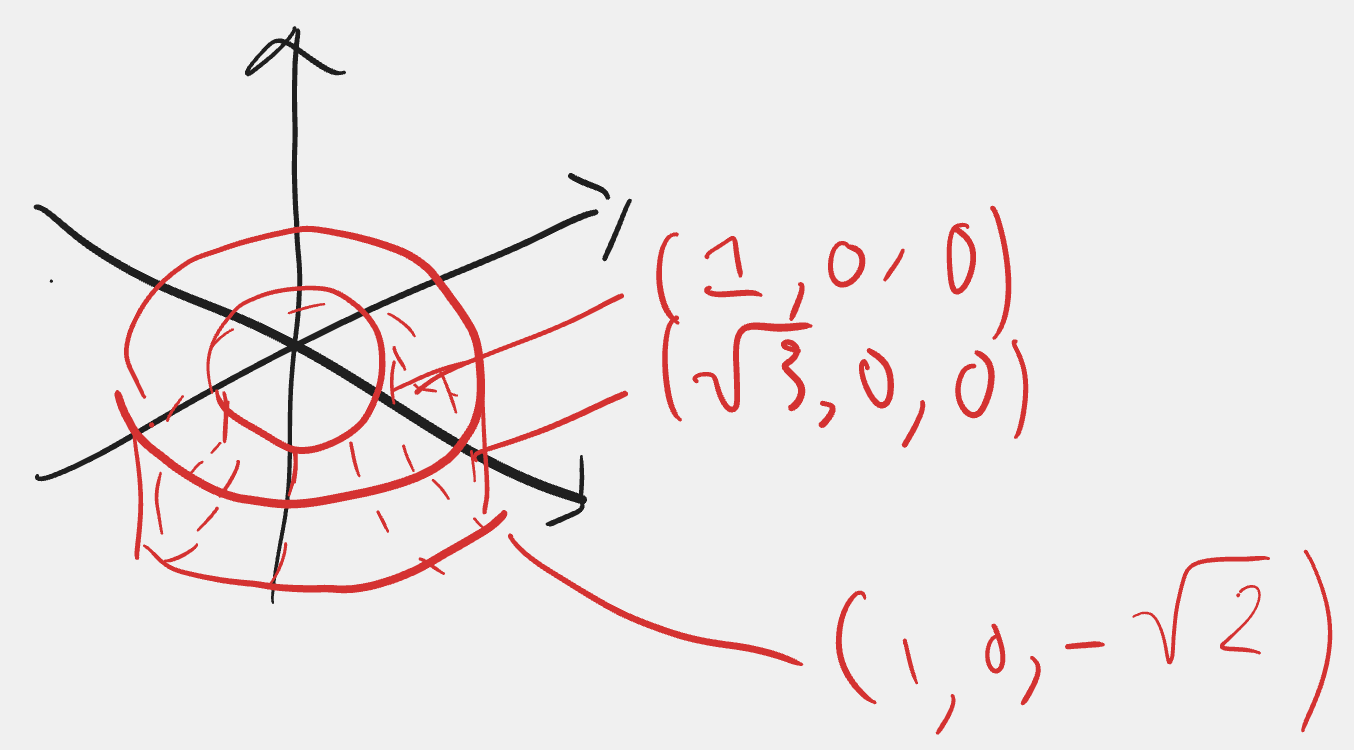 (1, 0, 0)
(√3, 0, 0)
(1, 0, -√2)